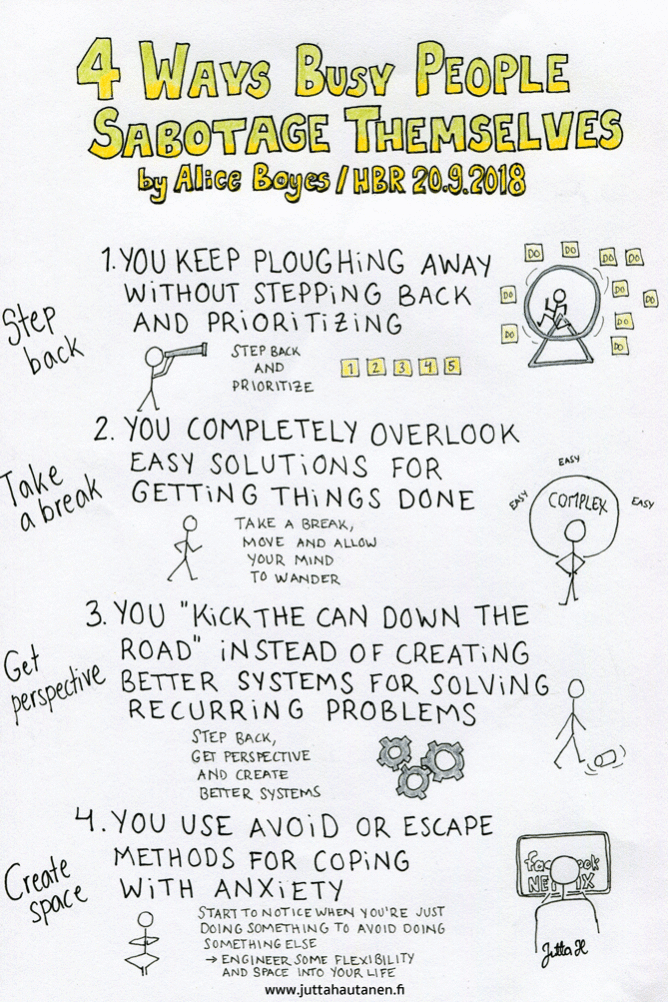 4 WAYS BUSY PEOPLE
SABOTAGE THEMSELVES
by Alice Boyes / HBR 20.9.2018
1. YOU KEEP PLOUGHING AWAY
WITHOUT STEPPING BACK
AND PRIORITIZING
DO
DO
DO
DO
DO
DO
DO
DO
DO
DO
Step
back
STEP BACK
AND
PRIORITIZE
1 2 3 4 5
2. YOU COMPLETELY OVERLOOK
EASY SOLUTIONS FOR
GETTING THINGS DONE
Take
a break
TAKE A BREAK,
MOVE AND ALLOW
YOUR MIND
TO WANDER
EASY
EASY
COMPLEX
EASY
3. YOU "KICK THE CAN DOWN THE
ROAD" INSTEAD OF CREATING
BETTER SYSTEMS FOR SOLVING
RECURRING PROBLEMS
Get
perspective
STEP BACK,
GET PERSPECTIVE
AND CREATE
BETTER SYSTEMS
4. YOU USE AVOID OR ESCAPE
METHODS FOR COPING
WITH ANXIETY
Create
space
START TO NOTICE WHEN YOU'RE JUST
DOING SOMETHING TO AVOID DOING
SOMETHING ELSE
→ ENGINEER SOME FLEXIBILITY
AND SPACE INTO YOUR LIFE
Jutta H
www.juttahautanen.fi